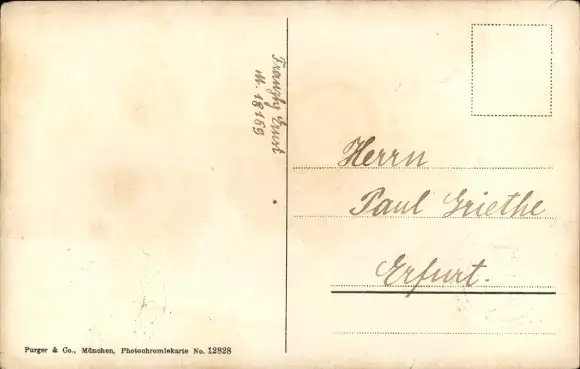 Ernst
M. 18159
Herrn
Paul Griethe
Erfurt.
Purger & Co., München, Photochromiekarte No. 12828